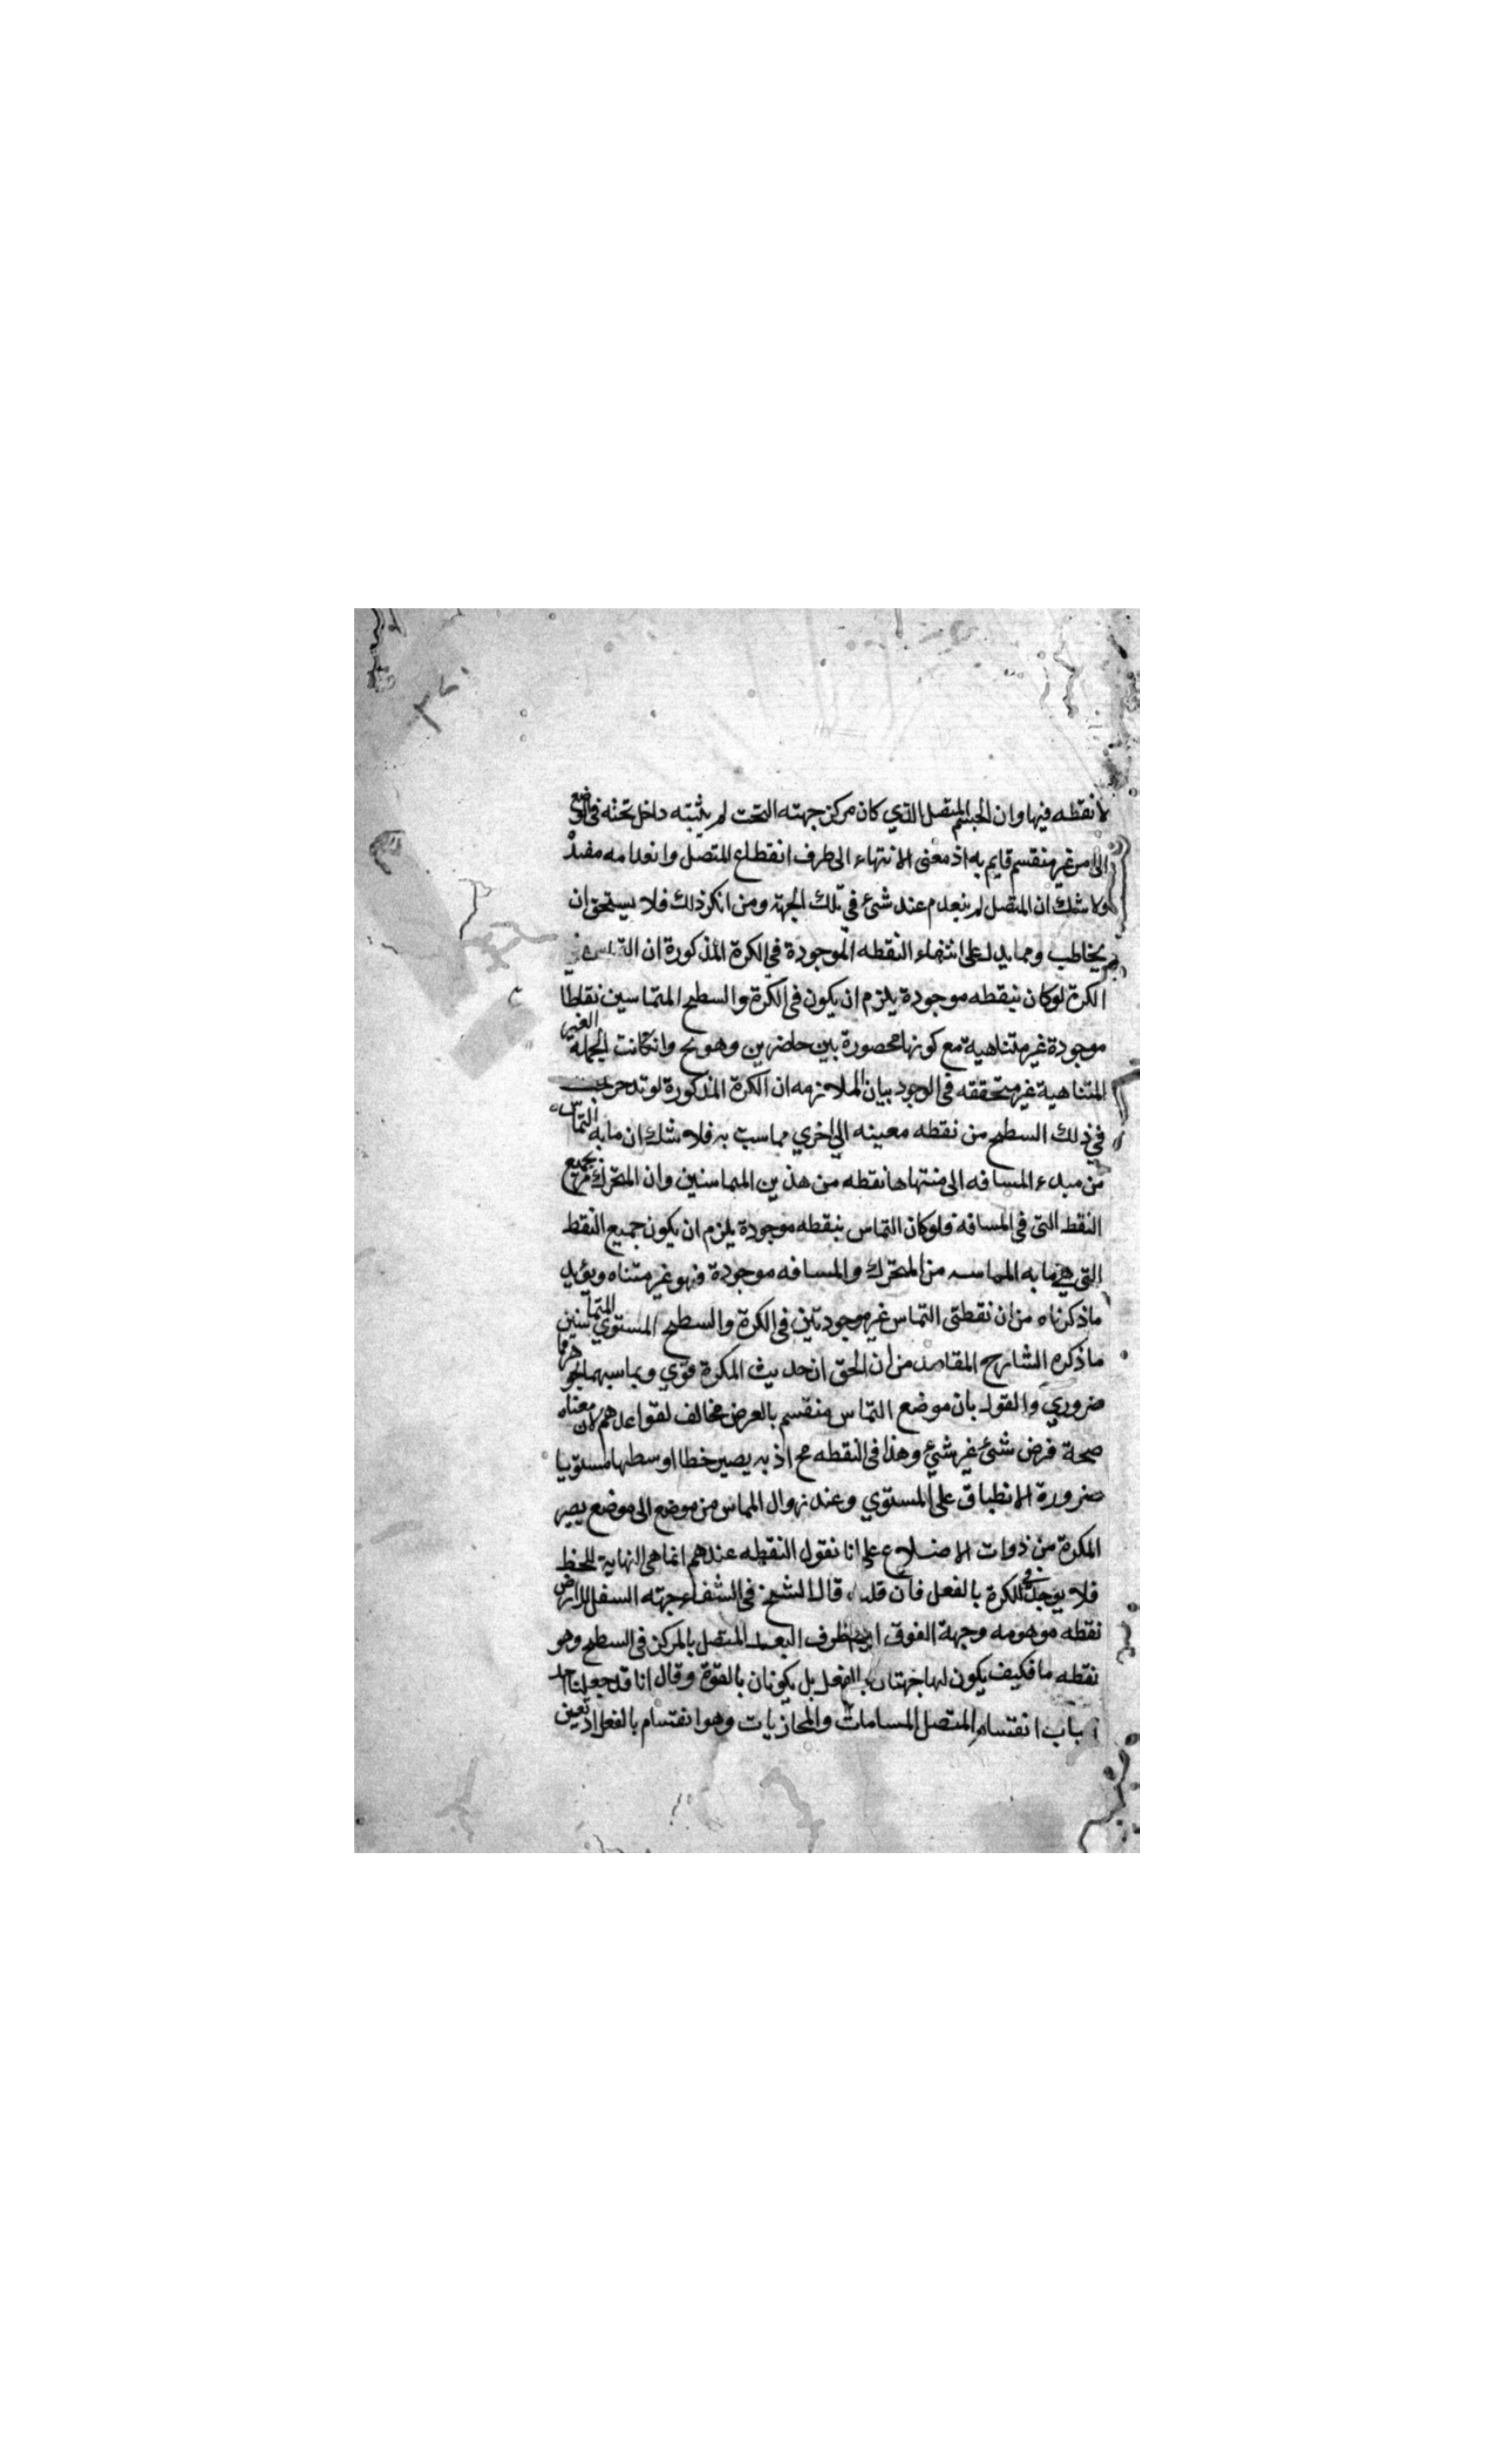 لا نقطه فيها وان الجسم المتصل الذي كان مركز جهته التحت لم يثبته داخل تحته في الوضع
الى امر غير منقسم قايم به اذ معنى الانتهاء الى طرف انقطاع المتصل وانعدامه
ولا شك ان المتصل لم ينعدم عند شئ في تلك الجهة ومن انكر ذلك فلا يستحق ان
يخاطب ومما يدل على انتفاء النقطه الموجودة في الكرة المذكورة ان
الكرة لو كان بنقطه موجودة يلزم ان يكون في الكرة والسطح المتماسين نقاطا
موجودة غير متناهية مع كونها محصورة بين حاضرين وهو مح وان كانت الجملة الغير
المتناهية غير متحققه في الوجود بيان الملازمه ان الكرة المذكورة لو تدحرجت
في ذلك السطح من نقطه معينه الى اخري مماست به فلا شك ان ما به التماس
من مبدء المسافه الى منتهاها نقطه من هذين المتماسين وان المتحرك مر بجميع
النقط التي في المسافة فلو كان التماس بنقطه موجودة يلزم ان يكون جميع النقط
التي هي ما به المماسه من المتحرك والمسافه موجودة فهو غير متناه ويؤيد
ما ذكرناه من ان نقطتى التماس غير موجودتين في الكرة والسطح المستوي المتماسين
ما ذكره الشارح المقاصد من ان الحق ان حديث الكرة قوي وتماسهما
ضروري والقول بان موضع التماس منقسم بالعرض مخالف لقواعدهم لان معناه
صحة فرض شئ غير شئ وهذا في النقطه مح اذ به يصير خطا او سطحا مستويا
ضرورة الانطباق على المستوي وعند زوال المماس من موضع الى موضع يصير
الكرة من ذوات الاضلاع على انا نقول النقطه عندهم انما هي النهاية للخط
فلا يوجد في الكرة بالفعل فان قلت قال الشيخ في الشفاء جهته السفل للارض
نقطه موهومه وجهة الفوق طرف البعد المتصل بالمركز في السطح وهو
نقطه ما فكيف يكون لها جهتان بالفعل بل يكونان بالقوة وقال انا قد جعلنا احد
اسباب انقسام المتصل المسامات والمحازيات وهو انقسام بالفعل اذ تعين